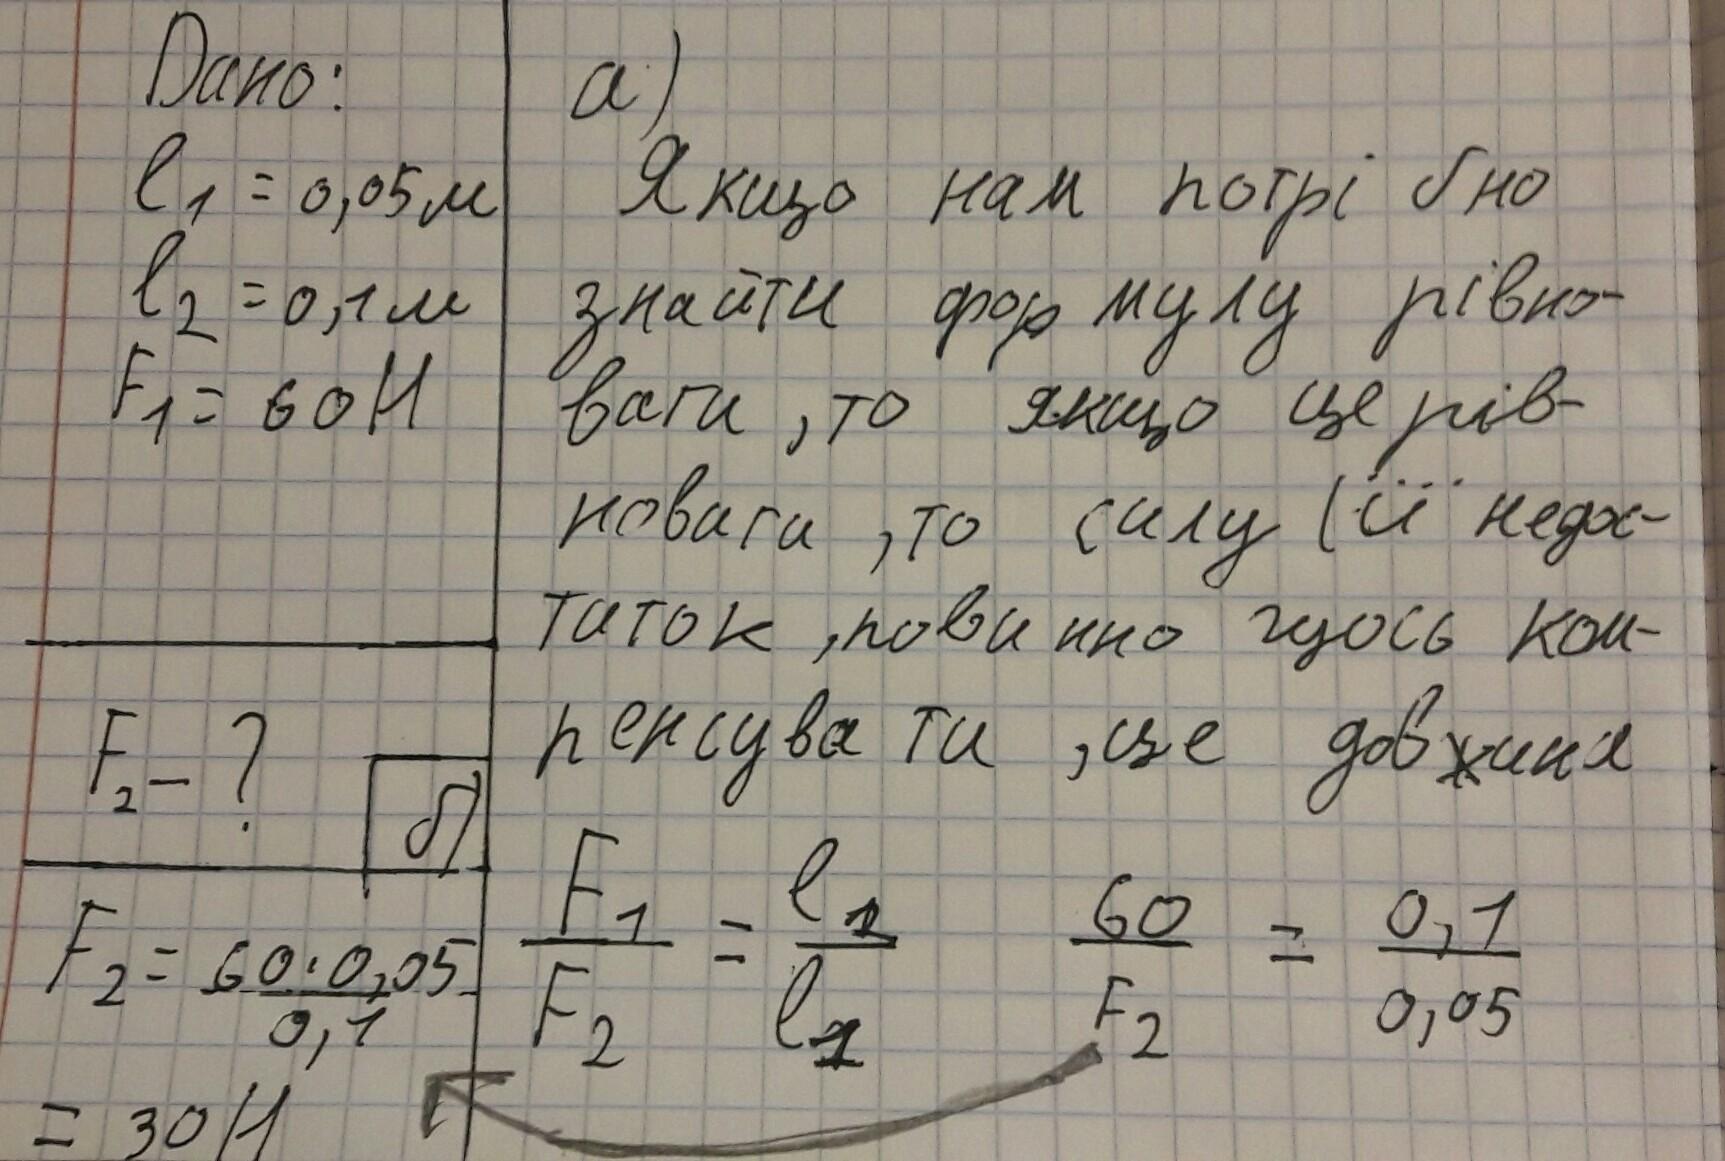 Дано:
l1 = 0,05м
l2 = 0,1м
F1 = 60Н
F2 – ?
а)
Якщо нам потрібно
знайти формулу рівно-
ваги, то якщо це рів-
новаги, то силу (її недос-
таток, повинно щось ком-
пенсувати, це довжина
F1/F2 = l2/l1 60/F2 = 0,1/0,05
б)
F2 = 60·0,05/0,1
= 30Н